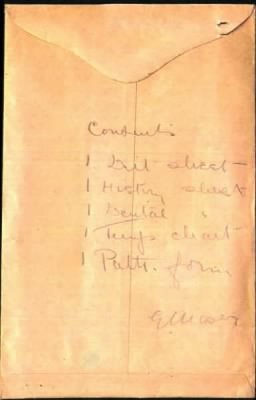 Contents
1 Unit sheet
1 History sheet
1 Dental "
1 Temp chart
1 Path. form